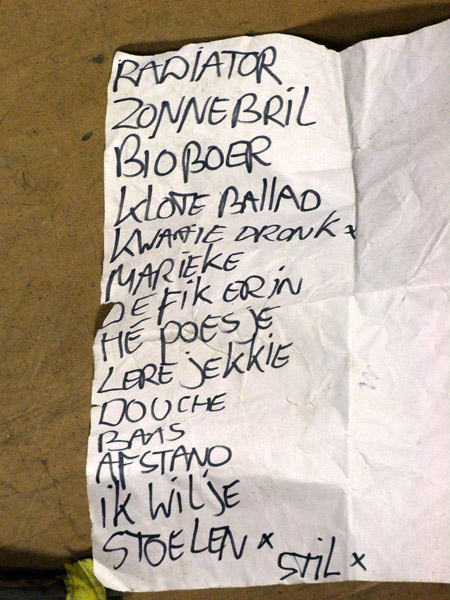 RADIATOR
ZONNEBRIL
BIOBOER
KLOTE BALLAD
KWAFIE DRONK x
MARIEKE
DE FIK ERIN
HÉ POESJE
LERE JEKKIE
DOUCHE
BAAS
AFSTAND
IK WIL JE
STOELEN x
STIL x